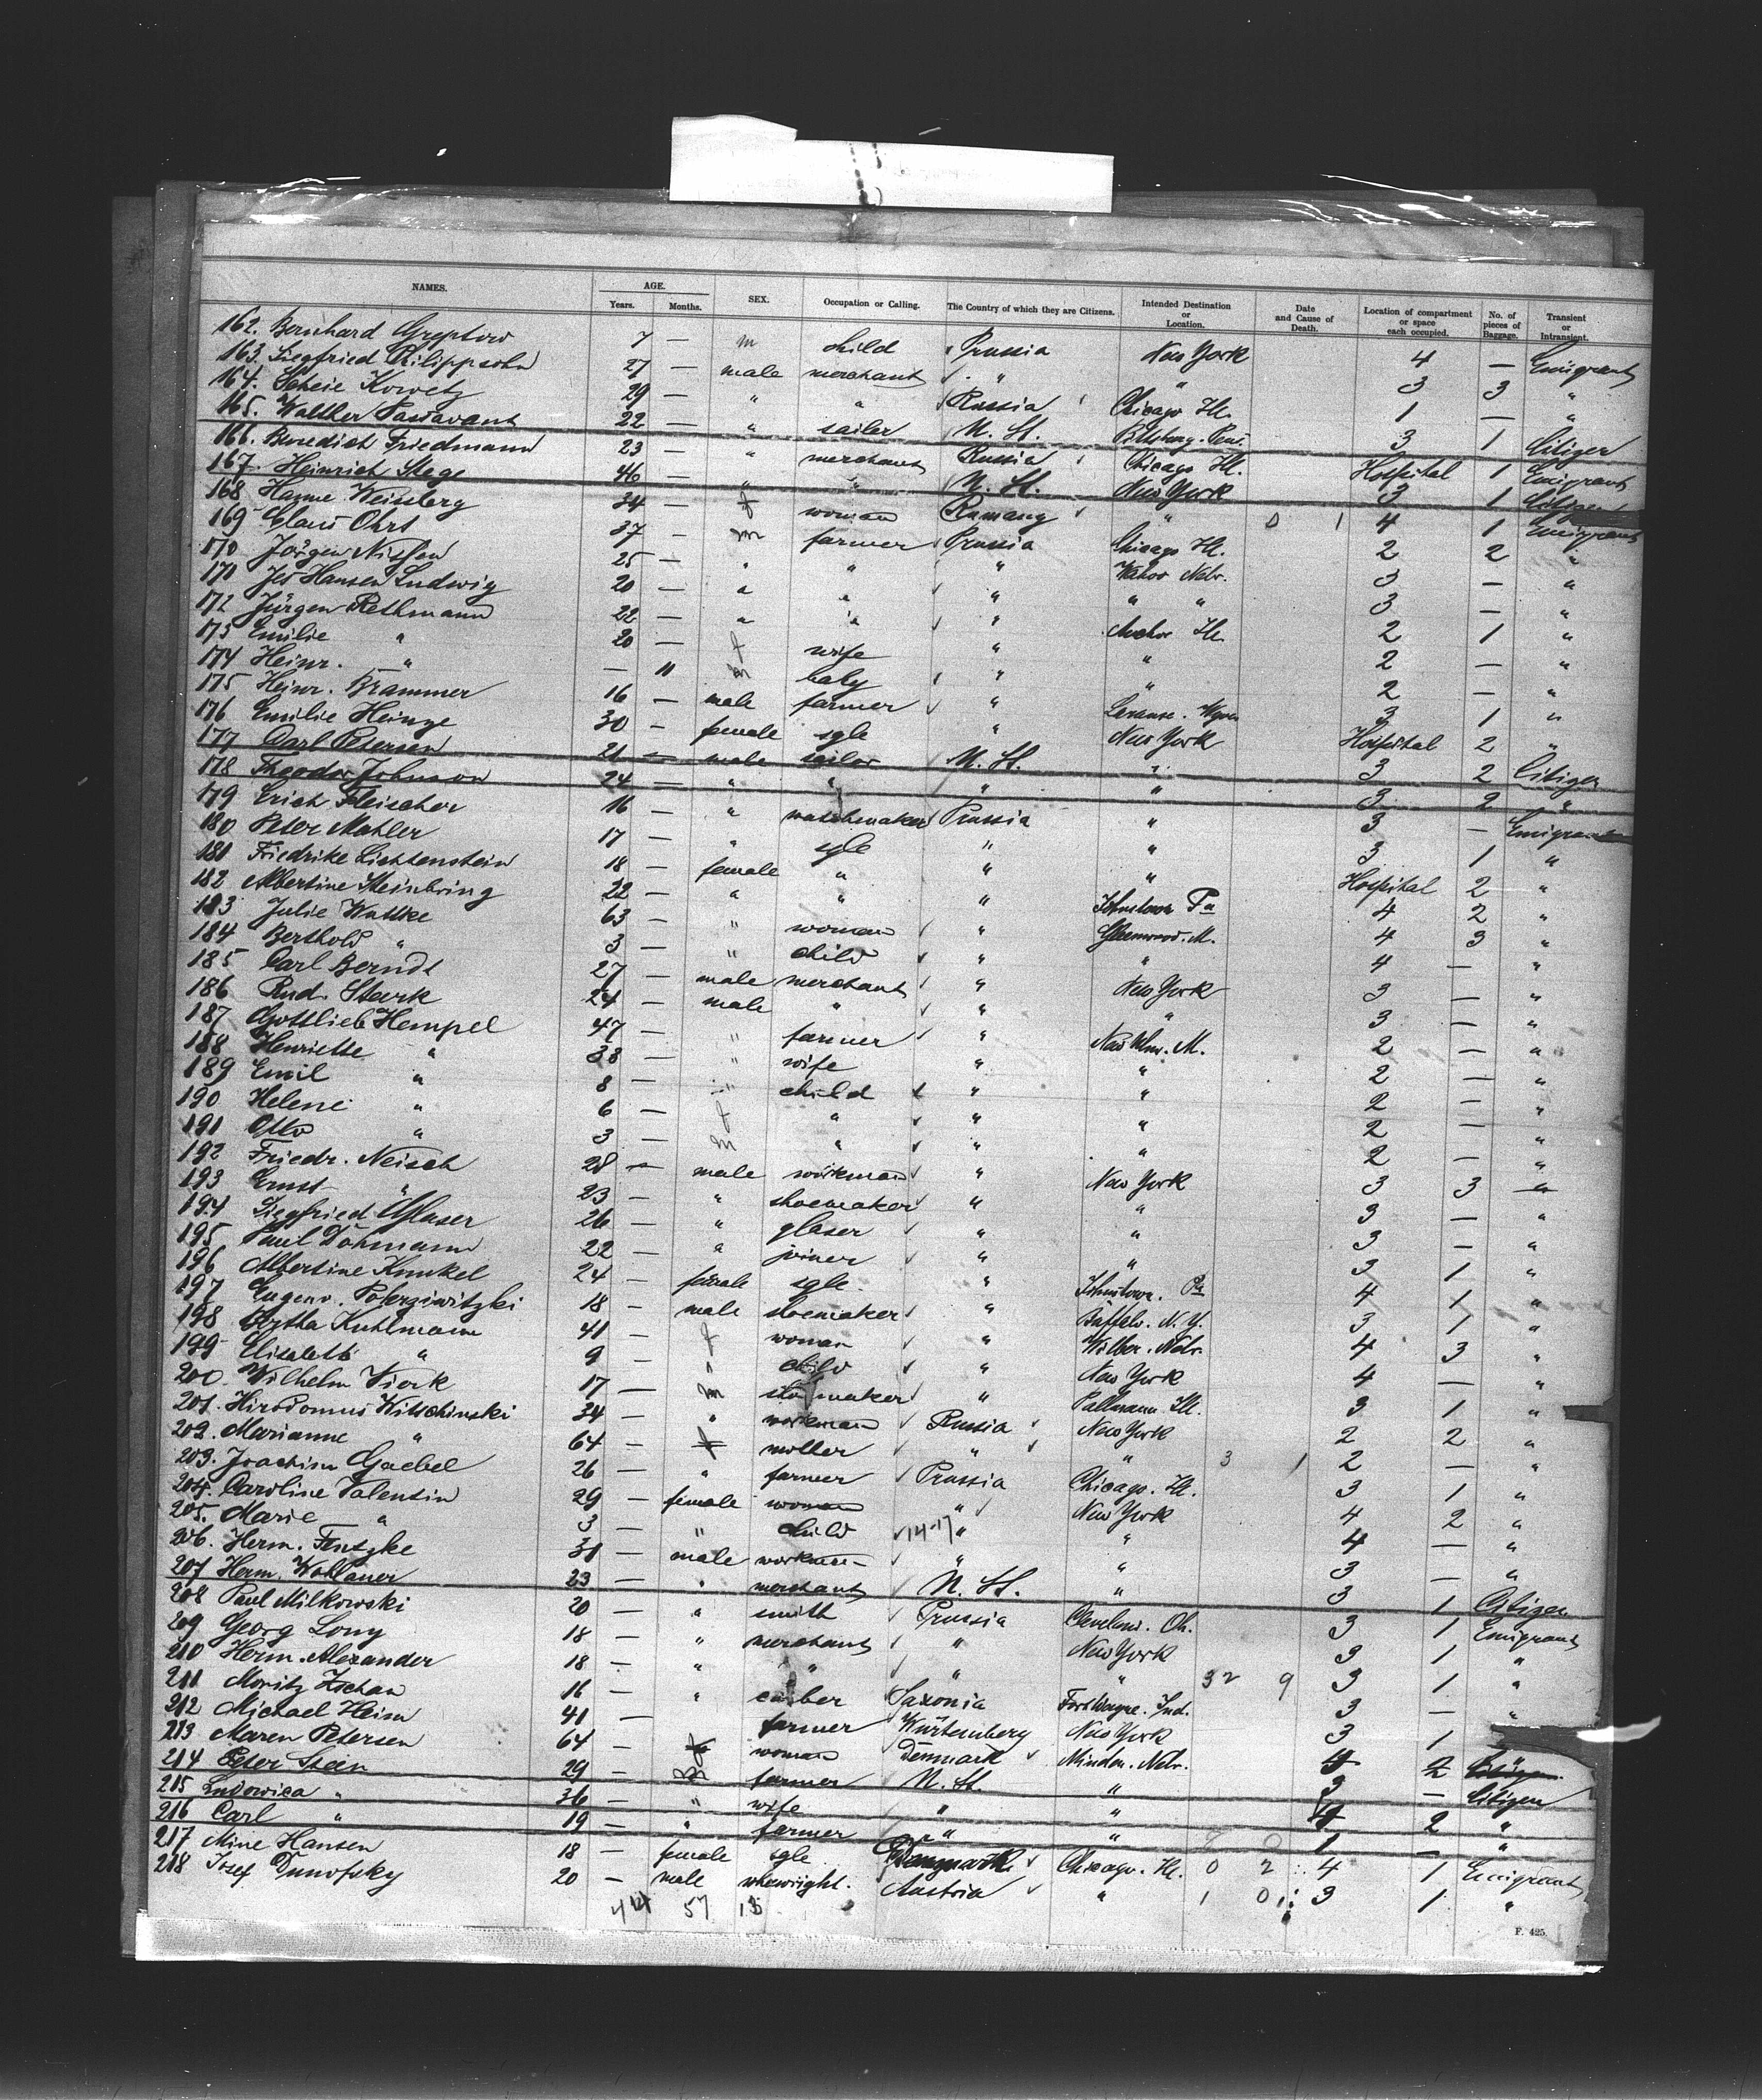 NAMES. AGE. Years. Months. SEX. Occupation or Calling. The Country of which they are Citizens. Intended Destination or Location. Date and Cause of Death. Location of compartment or space each occupied. No. of pieces of Baggage. Transient or Intransient.
162. Bernhard Greptow 7 — m child Prussia New York 4 — Emigrant
163. Siegfried Philippsohn 27 — male merchant " " 3 3 "
164. Scheie Kowetz 29 — " " Russia Chicago Ill. 1 — "
165. Walther Passavant 22 — " sailer U. St. Pittsberg. Pens. 3 1 Citizen
166. Benedict Friedmann 23 — " merchant Russia Chicago Ill. Hospital 1 Emigrant
167. Heinrich Stege 46 — " " U. St. New York 3 1 Citizen
168 Hanne Weissberg 34 — f woman Rumany " 0 1 4 1 Emigrant
169 Claus Ohrt 37 — m farmer Prussia Chicago Ill. 2 2 "
170 Jörgen Nissen 25 — " " " Wahoo Nebr. 3 — "
171 Jes Hansen Ludwig 20 — " " " " " 3 — "
172 Jürgen Rethmann 22 — " " " Ill. 2 1 "
173 Emilie " 20 — f wife " " 2 — "
174 Heinr. " — 11 m baby " " 2 — "
175 Heinr. Brammer 16 — male farmer " 3 1 "
176 Emilie Heinze 30 — female sgle " New York Hospital 2 "
177 Carl Petersen 21 — male sailor U. St. " 3 2 Citizen
178 Theodor Johnson 24 — " " " " 3 2 "
179 Erich Fleischer 16 — " watchmaker Prussia " 3 — Emigrant
180 Peter Mahler 17 — " sgle " " 3 1 "
181 Friedrike Lichtenstein 18 — female " " " Hospital 2 "
182 Albertine Steinbring 22 — " " " Johnstown Pa 4 2 "
183 Julie Wuttke 63 — " woman " Glenwood. M. 4 3 "
184 Berthold " 3 — " child " " 4 — "
185 Carl Berndt 27 — male merchant " New York 3 — "
186 Rud. Stark 24 — male " " " 3 — "
187 Gottlieb Hempel 47 — " farmer " New Ulm. M. 2 — "
188 Henriette " 38 — " wife " " 2 — "
189 Emil " 8 — " child " " 2 — "
190 Helene " 6 — f " " " 2 — "
191 Otto " 3 — m " " " 2 — "
192 Friedr. Neisch 28 — male workman " New York 3 3 "
193 Ernst " 23 — " shoemaker " " 3 — "
194 Siegfried Glaser 26 — " glaser " " 3 — "
195 Paul Dohmann 22 — " joiner " " 3 1 "
196 Albertine Kunkel 24 — female sgle. " Johnstown. Pa 4 1 "
197 Eugen. 18 — male shoemaker " Buffalo. N. Y. 3 1 "
198 Kuhlmann 41 — f woman " Wilber. Nebr. 4 3 "
199 Elisabeth " 9 — " child " New York 4 — "
200 Wilhelm Vierk 17 — m shoemaker " Pullmann Ill. 3 1 "
201. Hirodomus Witschinski 34 — " workman Russia New York 2 2 "
202. Marianne " 64 — f mother " " 3 1 2 — "
203. Joachim Gaebel 26 — " farmer Prussia Chicago. Ill. 3 1 "
204. Caroline Valentin 29 — female woman " New York 4 2 "
205. Marie " 3 — " child 14-17 " " 4 — "
206. Herm. Fentzke 31 — male workman " " 3 — "
207 Herm. Wohlauer 23 — " merchant U. St. " 3 1 Citizen
208 Paul Milkowski 20 — " smith Prussia Cleveland. Oh. 3 1 Emigrant
209 Georg Lony 18 — " merchant " New York 3 1 "
210 Herm. Alexander 18 — " " " " 32 9 3 1 "
211 Moritz Zschau 16 — " Saxonia Fort Wayne. Ind. 3 — "
212 Michael Heim 41 — farmer Würtemberg New York 3 1
213 Maren Petersen 64 — f woman Denmark Minden. Nebr. 4 2 Citizen
214 Peter Steen 29 — m farmer U. St. " 3 — Citizen
215 Ludowica " 36 — " wife " " 4 2 "
216 Carl " 19 — " farmer " " 1 — "
217 Mine Hansen 18 — female sgle Denmark Chicago. Ill. 0 2 4 1 Emigrant
218 Josef Dunofsky 20 — male wheelwright. Austria " 1 0 1 3 1 "
44 57 13
F. 425.